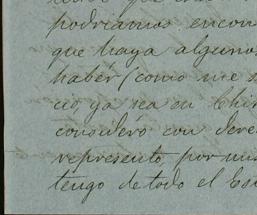 podriamos encon
que haya alguno
haber (como me
cio ya sea en Chi
considero con dere
represento por mi
tengo de todo el Es